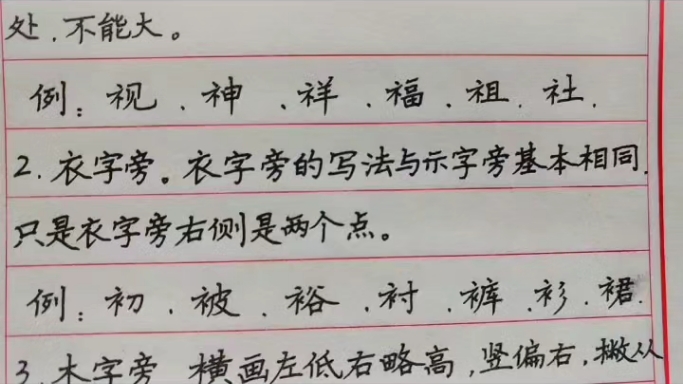 处、不能大。
例：视、神、祥、福、祖、社、
2.衣字旁。衣字旁的写法与示字旁基本相同，
只是衣字旁右侧是两个点。
例：初、被、裕、衬、裤、衫、裙.
3.木字旁 横画左低右略高，竖偏右，撇从